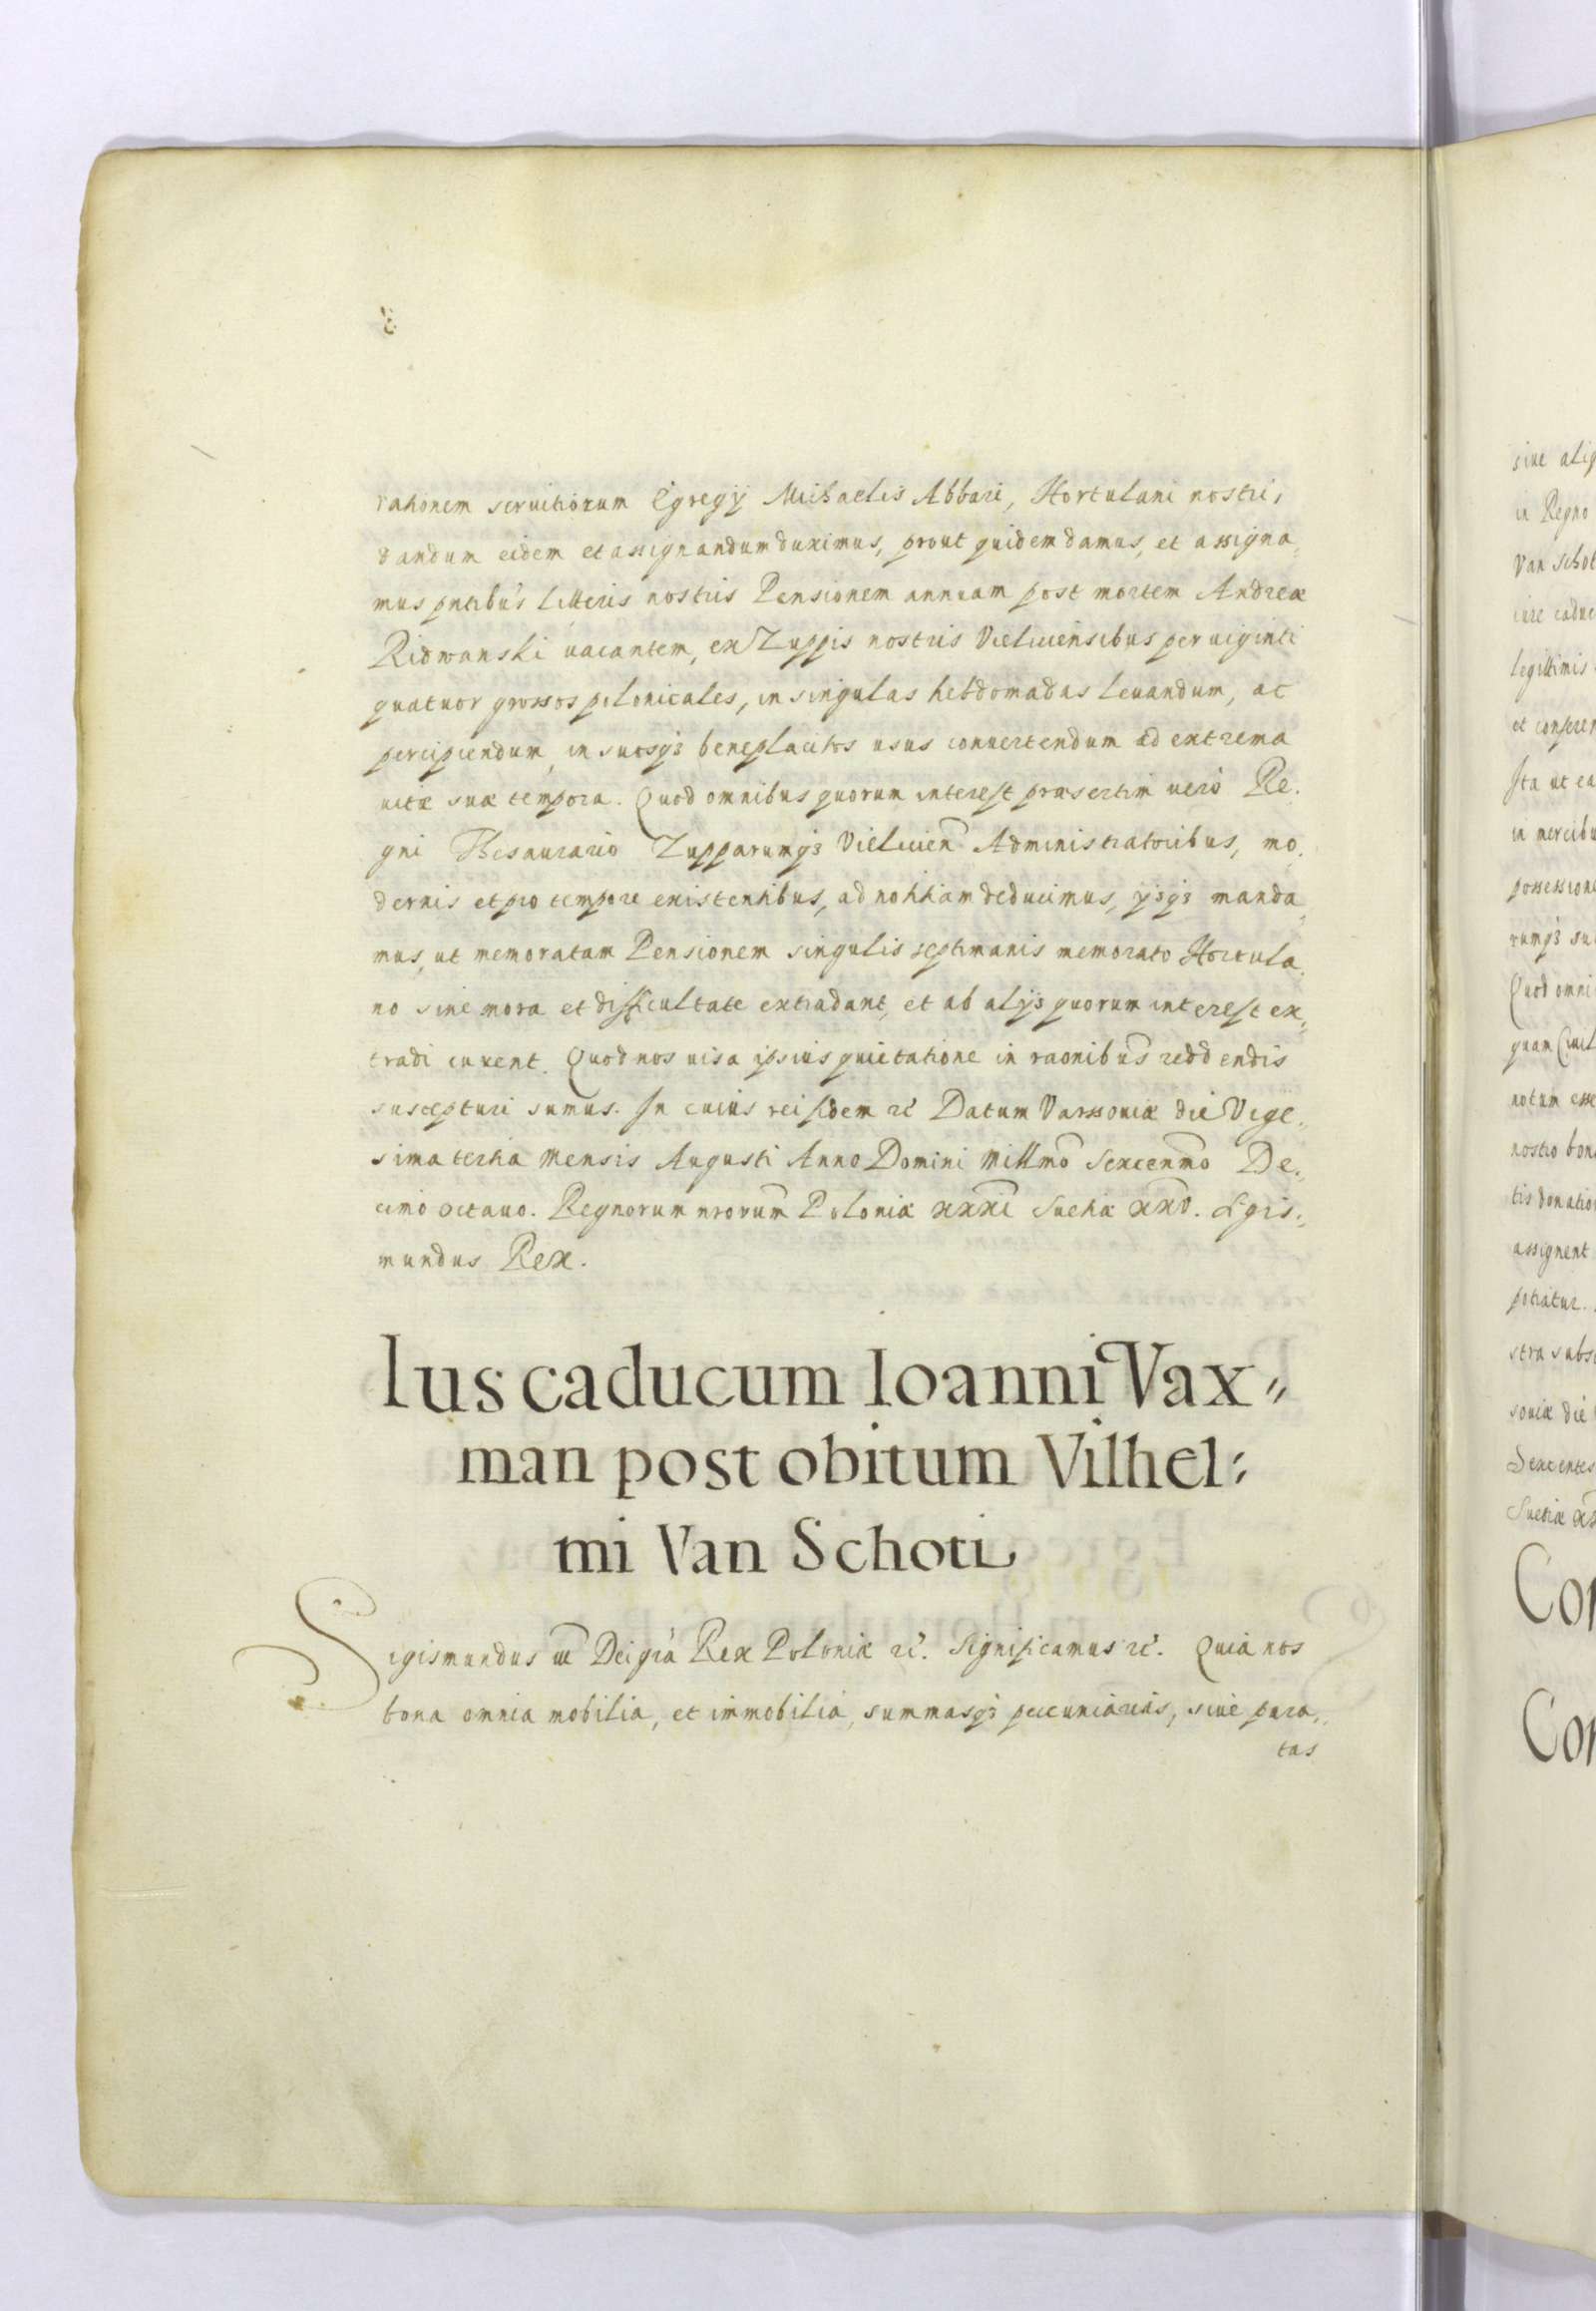 rationem seruitiorum Egregij Michaelis Abbari, Hortulani nostri,
dandum eidem et assignandum duximus, prout quidem damus, et assigna„
mus pntibus litteris nostris Pensionem annuam post mortem Andreæ
Ridwanski uacantem, ex Zuppis nostris Vieliciensibus per uiginti
quatuor grossos polonicales, in singulas hebdomadas leuandum, ac
percipiendum, in suosq3 beneplacitos usus conuertendum ad extrema
uitæ suæ tempora. Quod omnibus quorum interest præsertim uero Re„
gni Thesaurario Zupparumq3 Vielicien Administratoribus, mo„
dernis et pro tempore existentibus, ad notitiam deducimus, ijsq3 manda„
mus, ut memoratam Pensionem singulis septimanis memorato Hortula„
no sine mora et difficultate extradant, et ab alijs quorum interest ex„
tradi curent. Quod nos uisa ipsius quietatione in raonibus reddendis
suscepturi sumus. In cuius rei fidem rc̃ Datum Varssouiæ die Vige„
sima tertia Mensis Augusti Anno Domini Millmo Sexcenmo De„
cimo octauo. Regnorum nrorum Poloniæ XXXI Sueciæ XXV. Sigis„
mundus Rex.
Ius caducum Ioanni Vax„
man post obitum Vilhel„
mi Van Schoti
Sigismundus III Dei gra Rex Poloniæ rc̃. Significamus rc̃. Quia nos
bona omnia mobilia, et immobilia, summasq3 pecuniarias, siue para„
tas
siue aliq
in Regno
Van Schot
iure caduc
legittimis
et conferen
Ita ut ea
in mercibu
possessione
rumq3 su
Quod omni
quam Ciuil
notum esse
nostro bon
tis donatio
assignent
potiatur.
stra subs
souiæ die
Sexcentes
Sueciæ XX
Con
Con